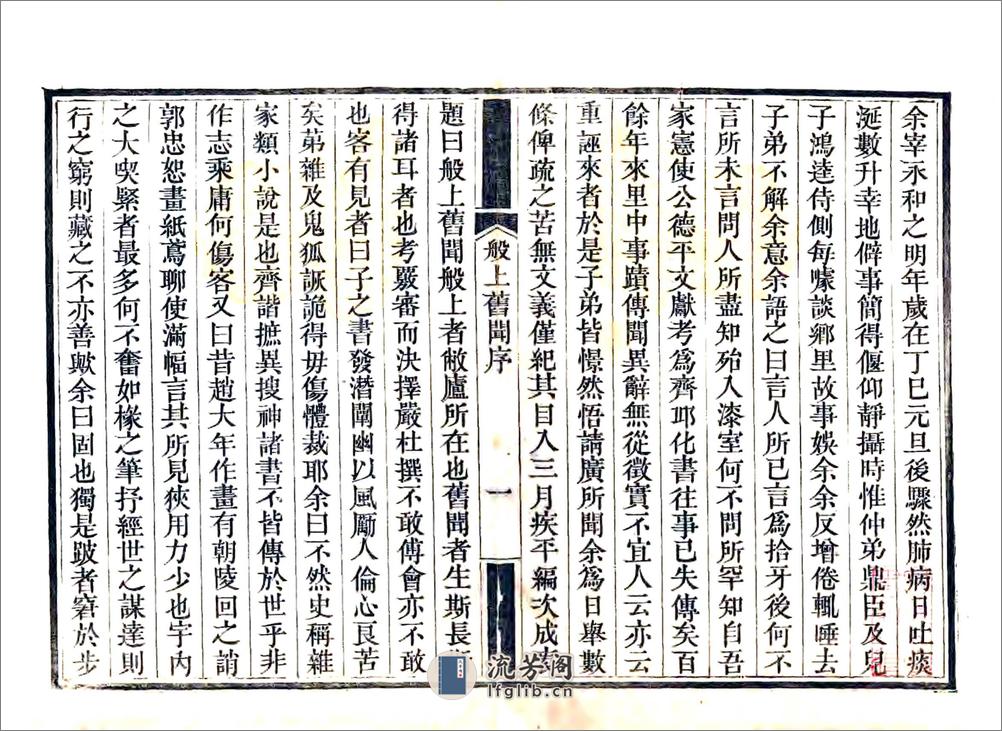 余宰禾和之明年歲在丁巳元旦後驟然肺病日吐痰
涎數升幸地僻事簡得偃仰靜攝時惟仲弟鼎臣及兒
子鴻逵侍側每㘎談鄉里故事娛余余反增倦輒睡去
子弟不解余意余語之曰言人所已言爲拾牙後何不
言所未言問人所盡知殆入漆室何不問所罕知自吾
家憲使公德平文獻考爲齊耶化書往事已失傳矣百
餘年來里中事蹟傳聞異辭無從徵實不宜人云亦云
重誣來者於是子弟皆憬然悟請廣所聞余爲日舉數
條俾疏之苦無文義僅紀其目入三月疾平編次成
題曰般上舊聞般上者敝廬所在也舊聞者生斯長
得諸耳者也考覈審而決擇嚴杜撰不敢傅會亦不敢
也客有見者曰子之書發潛闡幽以風勵人倫心良苦
矣苐雜及鬼狐誕詭得毋傷體裁耶余曰不然史稱雜
家類小說是也齊諧摭異搜神諸書不皆傳於世乎非
作志乘庸何傷客又曰昔趙大年作畫有朝陵回之誚
郭忠恕畫紙鳶聊使滿幅言其所見狹用力少也宇内
之大喫緊者最多何不奮如椽之筆抒經世之謀達則
行之窮則藏之不亦善歟余曰固也獨是跛者窘於步
般上舊聞序
一
流芳阁
lfglib.cn